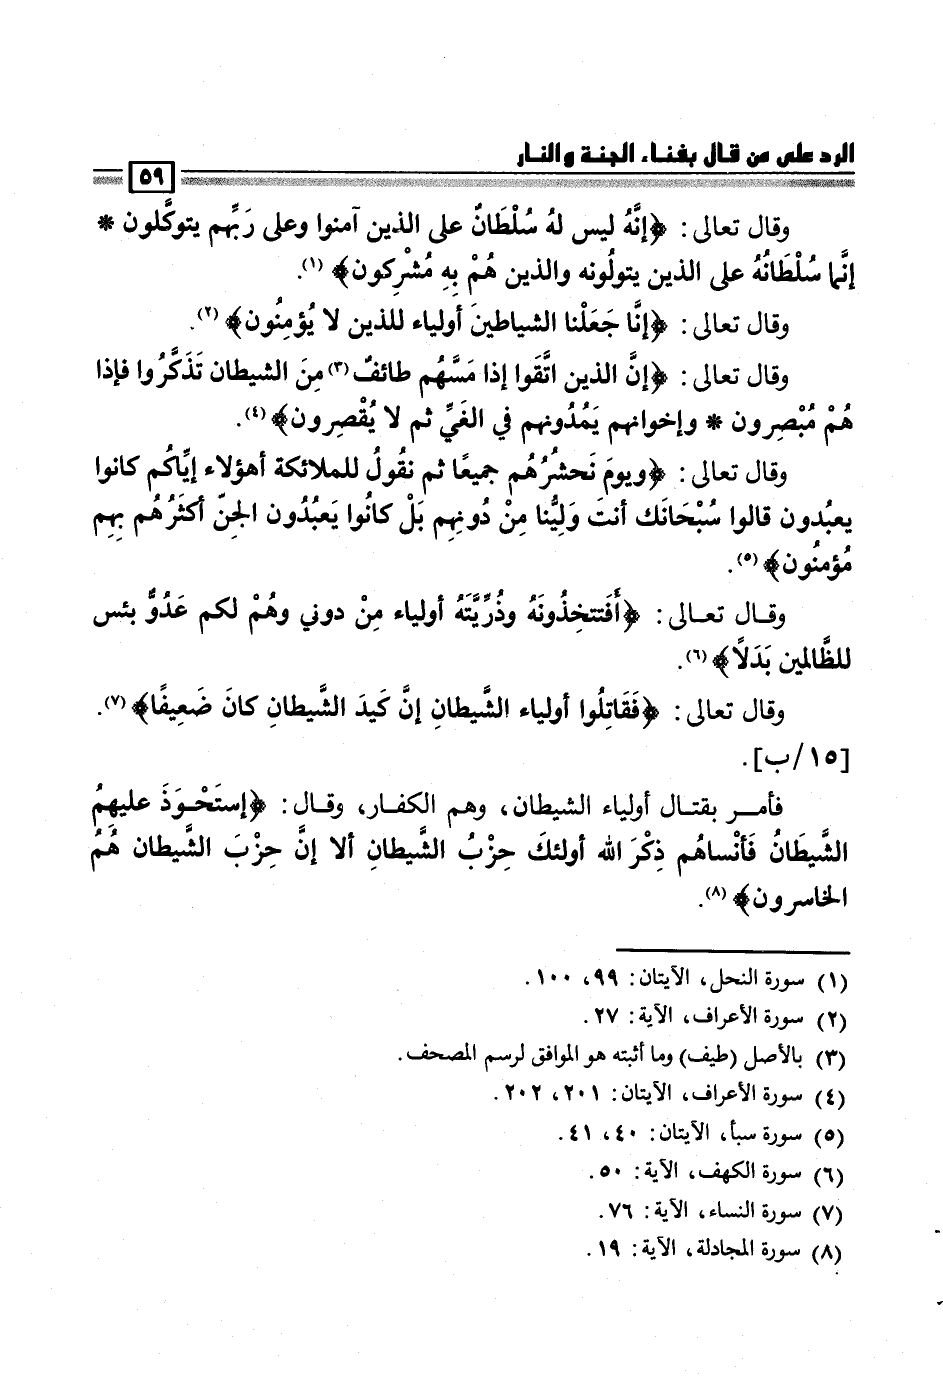 الرد على من قال بفناء الجنة والنار
٥٩
وقال تعالى: ﴿إنَّهُ ليس لهُ سُلْطَانٌ على الذين آمنوا وعلى رَبِّهم يتوكَّلون *
إنَّما سُلْطَانُهُ على الذين يتولُونه والذين هُمْ بِهِ مُشْرِكون﴾ (١).
وقال تعالى: ﴿إنَّا جَعَلْنا الشياطينَ أولياء للذين لا يُؤمِنُون﴾ (٢).
وقال تعالى: ﴿إنَّ الذين اتَّقَوا إذا مَسَّهُم طائفٌ(٣) مِنَ الشيطان تَذَكَّرُوا فإذا
هُمْ مُبْصِرون * وإخوانهم يَمُدُونهم في الغَيِّ ثم لا يُقْصِرون﴾ (٤).
وقال تعالى: ﴿ويومَ نَحشُرُهُم جميعًا ثم نقُولُ للملائكة أهؤلاء إيَّاكُم كانوا
يعبُدون قالوا سُبْحَانَك أنتَ وَلِيُّنا مِنْ دُونِهم بَلْ كانُوا يَعبُدُون الجنّ أكثَرُهُم بِهِم
مُؤمنُون﴾ (٥).
وقـال تعـالى: ﴿أَفَتتخِذُونَهُ وذُرِّيَّتَهُ أولياء مِنْ دوني وهُمْ لكم عَدُوٌّ بئس
للظَّالمين بَدَلًا﴾ (٦).
وقال تعالى: ﴿فَقَاتِلُوا أولياء الشَّيطانِ إنَّ كَيدَ الشَّيطانِ كانَ ضَعِيفًا﴾ (٧).
[١٥/ب].
فأمـر بقتـال أولياء الشيطان، وهم الكفار، وقـال: ﴿إستَحْـوَذَ عليهمُ
الشَّيطَانُ فَأنْساهُم ذِكْرَ الله أولئكَ حِزْبُ الشَّيطانِ ألا إنَّ حِزْبَ الشَّيطان هُمُ
الخاسرون﴾ (٨).
(١) سورة النحل، الآيتان: ٩٩، ١٠٠.
(٢) سورة الأعراف، الآية: ٢٧.
(٣) بالأصل (طيف) وما أثبته هو الموافق لرسم المصحف.
(٤) سورة الأعراف، الآيتان: ٢٠١، ٢٠٢.
(٥) سورة سبأ، الآيتان: ٤٠، ٤١.
(٦) سورة الكهف، الآية: ٥٠.
(٧) سورة النساء، الآية: ٧٦.
(٨) سورة المجادلة، الآية: ١٩.